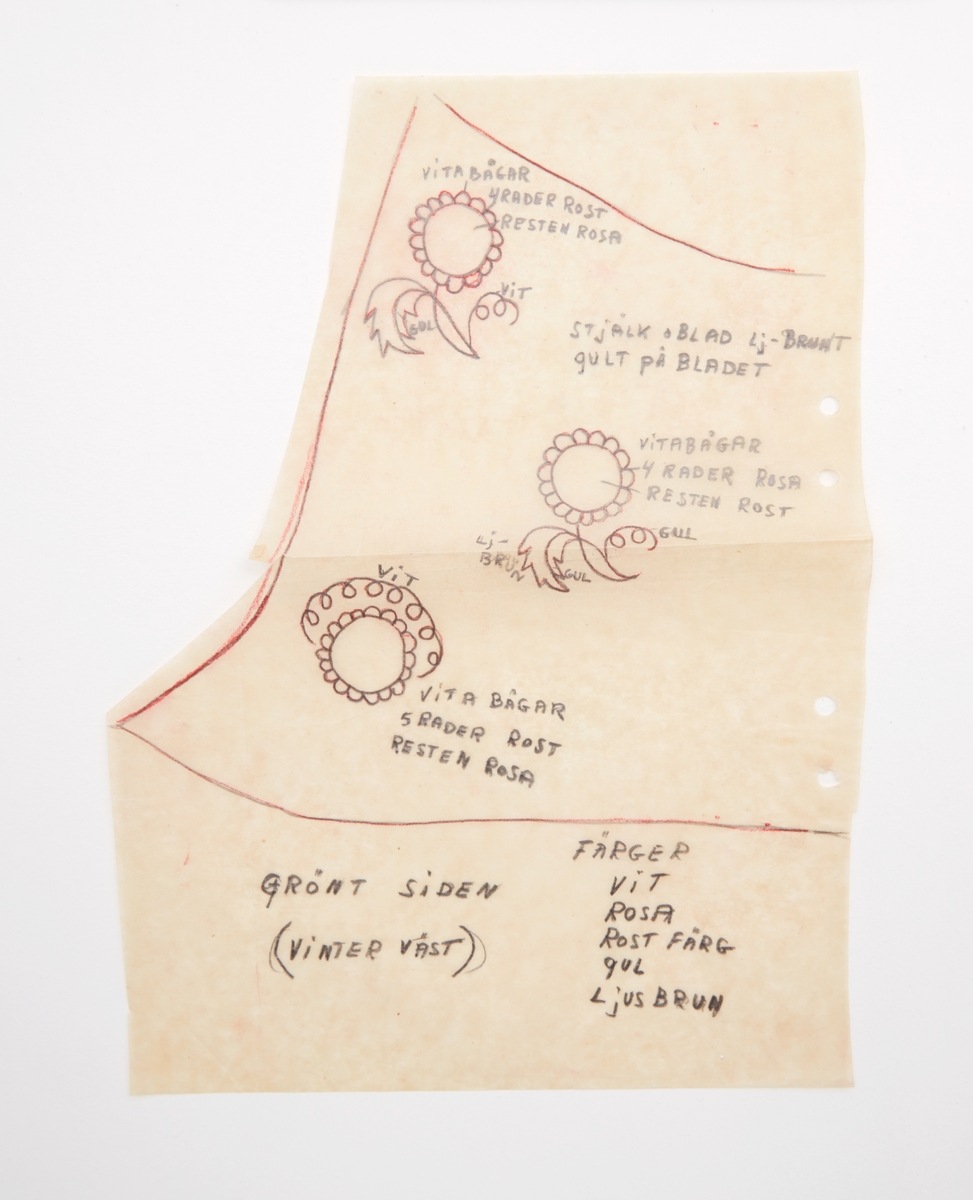 ViTA BÅGAR
4 RADER ROST
RESTEN ROSA
ViT
GUL
STjÄLK o BLAD Lj-BRUNT
gULT på BLADET
ViTA BÅGAR
4 RADER ROSA
RESTEN ROST
GUL
Lj-
BRUN
GUL
ViT
ViTA BÅGAR
5 RADER ROST
RESTEN ROSA
FÄRGER
ViT
ROSA
ROST FÄRG
gUL
LjUS BRUN
GRÖNT SiDEN
(ViNTER VÄST)